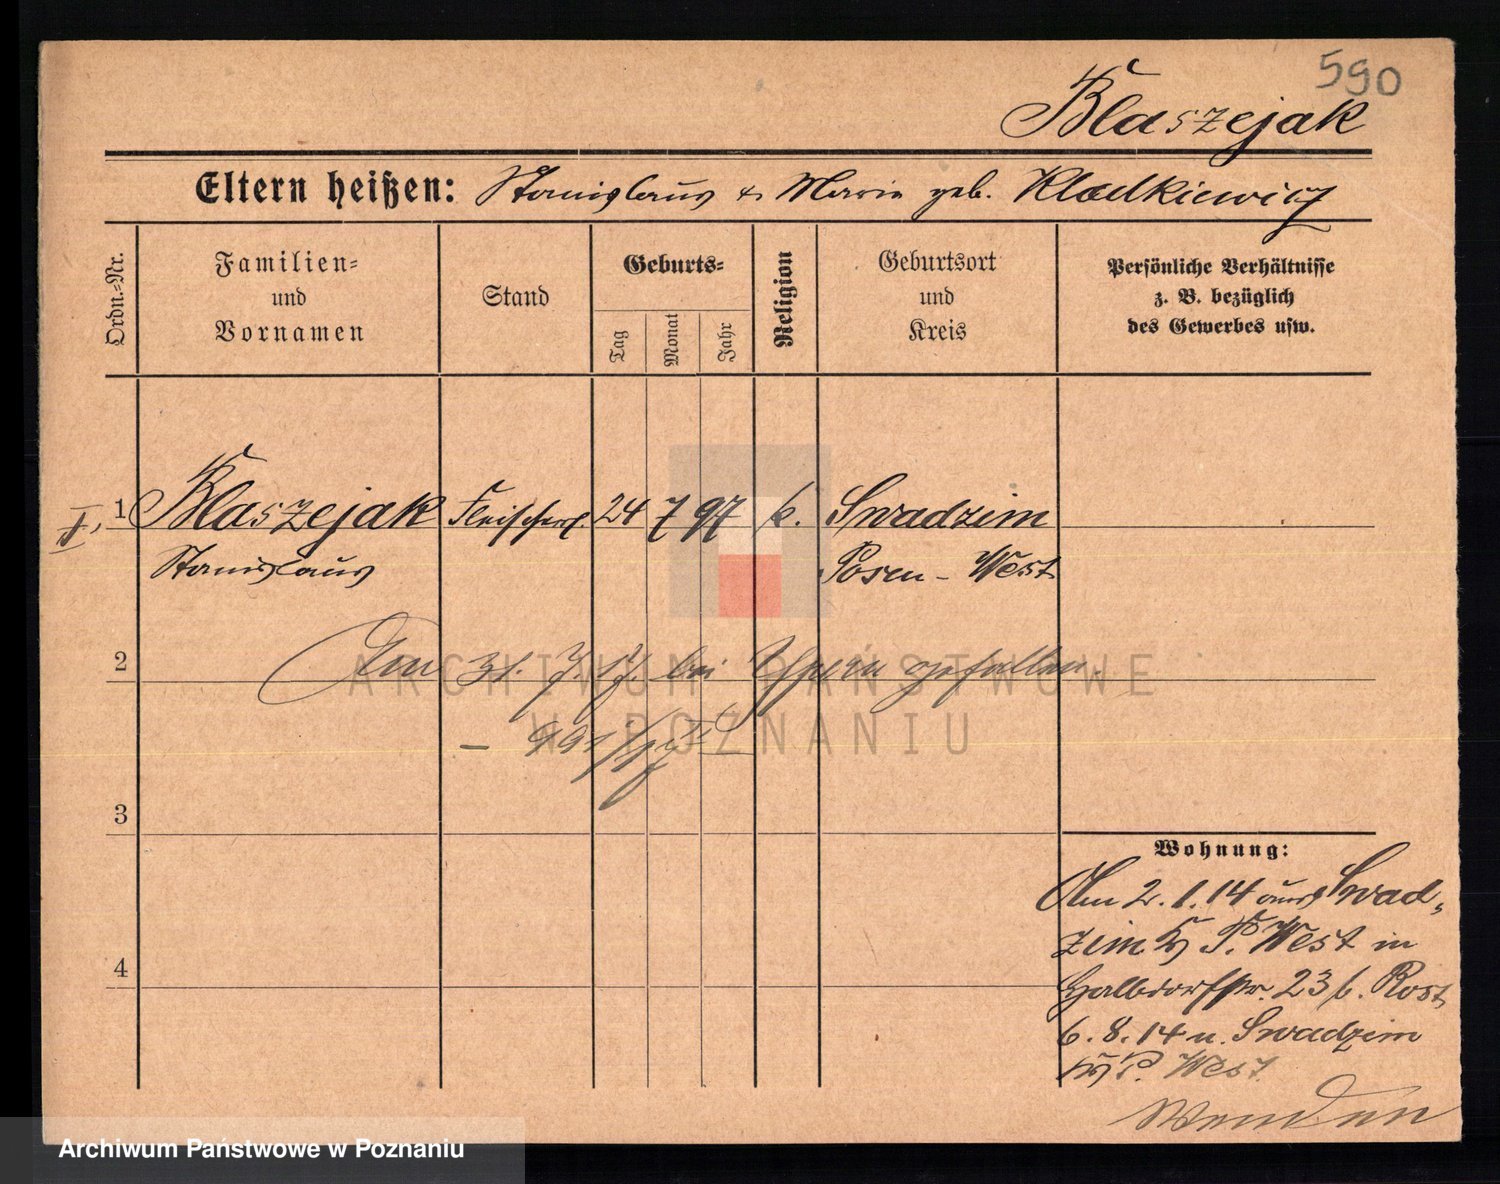 590
Blaszejak
Eltern heißen: Stanislaus & Marie geb. Kladkiewicz
Ordn.-Nr.
Familien-
und
Vornamen
Stand
Geburts-
Tag
Monat
Jahr
Religion
Geburtsort
und
Kreis
Persönliche Verhältnisse
z. B. bezüglich
des Gewerbes usw.
I, 1 Blaszejak Fleischerl. 24 7 97 k. Swadzim
Stanislaus Posen - West
2 Am 31. 7. 17. bei Ypern gefallen.
3
4
Wohnung:
Am 2.1.14 aus Swad-
zim Kr P. West in
Halbdorfstr. 23 b. Rost
6.8.14 n. Swadzim
Kr P. West
Wenden
ARCHIWUM PAŃSTWOWE
W POZNANIU
Archiwum Państwowe w Poznaniu